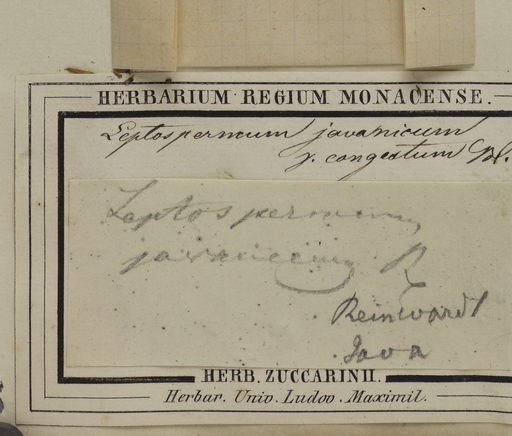 HERBARIUM REGIUM MONACENSE.
Leptospermum javanicum
γ. congestum Bl.
Leptospermum
javanicum R
Reinwardt
Java
HERB. ZUCCARINII.
Herbar. Univ. Ludov. Maximil.